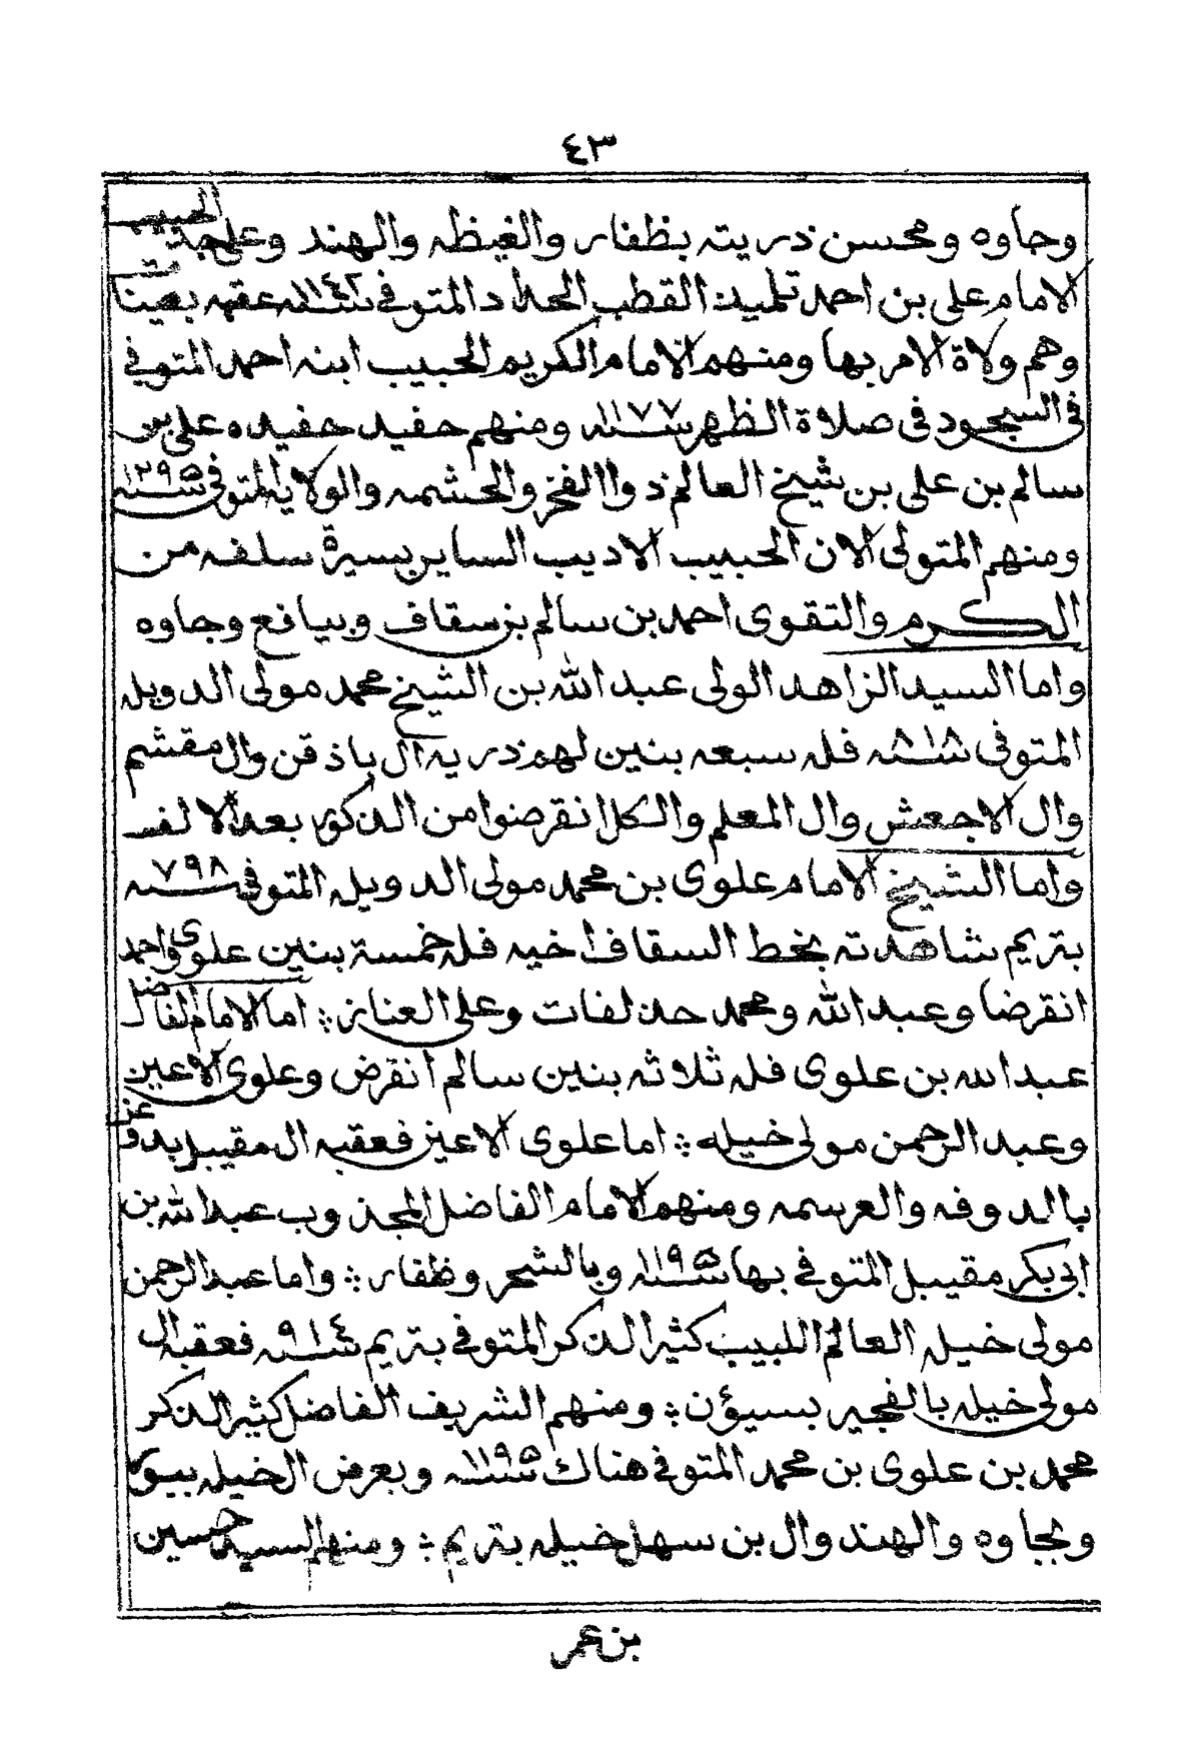 ٤٣
وجاوه ومحسن ذريته بظفار والغيظه والهند وعلي جد الحبيب
الامام علي بن احمد تلميذ القطب الحداد المتوفي سنة ١١٤٢ عقبه بعينات
وهم ولاة الامر بها ومنهم الامام الكريم الحبيب ابنه احمد المتوفي
في السجود في صلاة الظهر سنه ١١٧٧ ومنهم حفيد حفيده علي بن
سالم بن علي بن شيخ العالم ذو الفخر والحشمه والولايه المتوفي سنه ١٢٩٥
ومنهم المتولي الان الحبيب الاديب الساير بسيرة سلفه من
الكرم والتقوى احمد بن سالم بن سقاف وبيافع وجاوه
واما السيد الزاهد الولي عبد الله بن الشيخ محمد مولى الدويله
المتوفي سنه ٨١٨ فله سبعه بنين لهم ذريه ال باذقن وال مقشم
وال الاجعش وال المعلم والكل انقرضوا من الذكور بعد الالف
واما الشيخ الامام علوي بن محمد مولى الدويله المتوفي سنه ٧٩٨
بتريم شاهدته بخط السقاف اخيه فله خمسة بنين علوي واحمد
انقرضا وعبد الله ومحمد حد لفات وعلي العناز ؛ اما الامام الفاضل
عبد الله بن علوي فله ثلاثه بنين سالم انقرض وعلوي الاعين
وعبد الرحمن مولى خيله ؛ اما علوي الاعين فعقبه ال مقيبل بدوعن
بالدوفه والعرسمه ومنهم الامام الفاضل المجذوب عبد الله بن
ابي بكر مقيبل المتوفي بها سنه ١١٩٥ وبالشحر وظفار ؛ واما عبد الرحمن
مولى خيله العالم اللبيب كثير الذكر المتوفي بتريم سنه ٩١٤ فعقبه ال
مولى خيله بالفجير بسيؤن ؛ ومنهم الشريف الفاضل كثير الذكر
محمد بن علوي بن محمد المتوفي هناك سنه ١١٩٥ وبعرض ال خيله ببور
وبجاوه والهند وال بن سهل خيله بتريم ؛ ومنهم السيد حسين
بن عمر